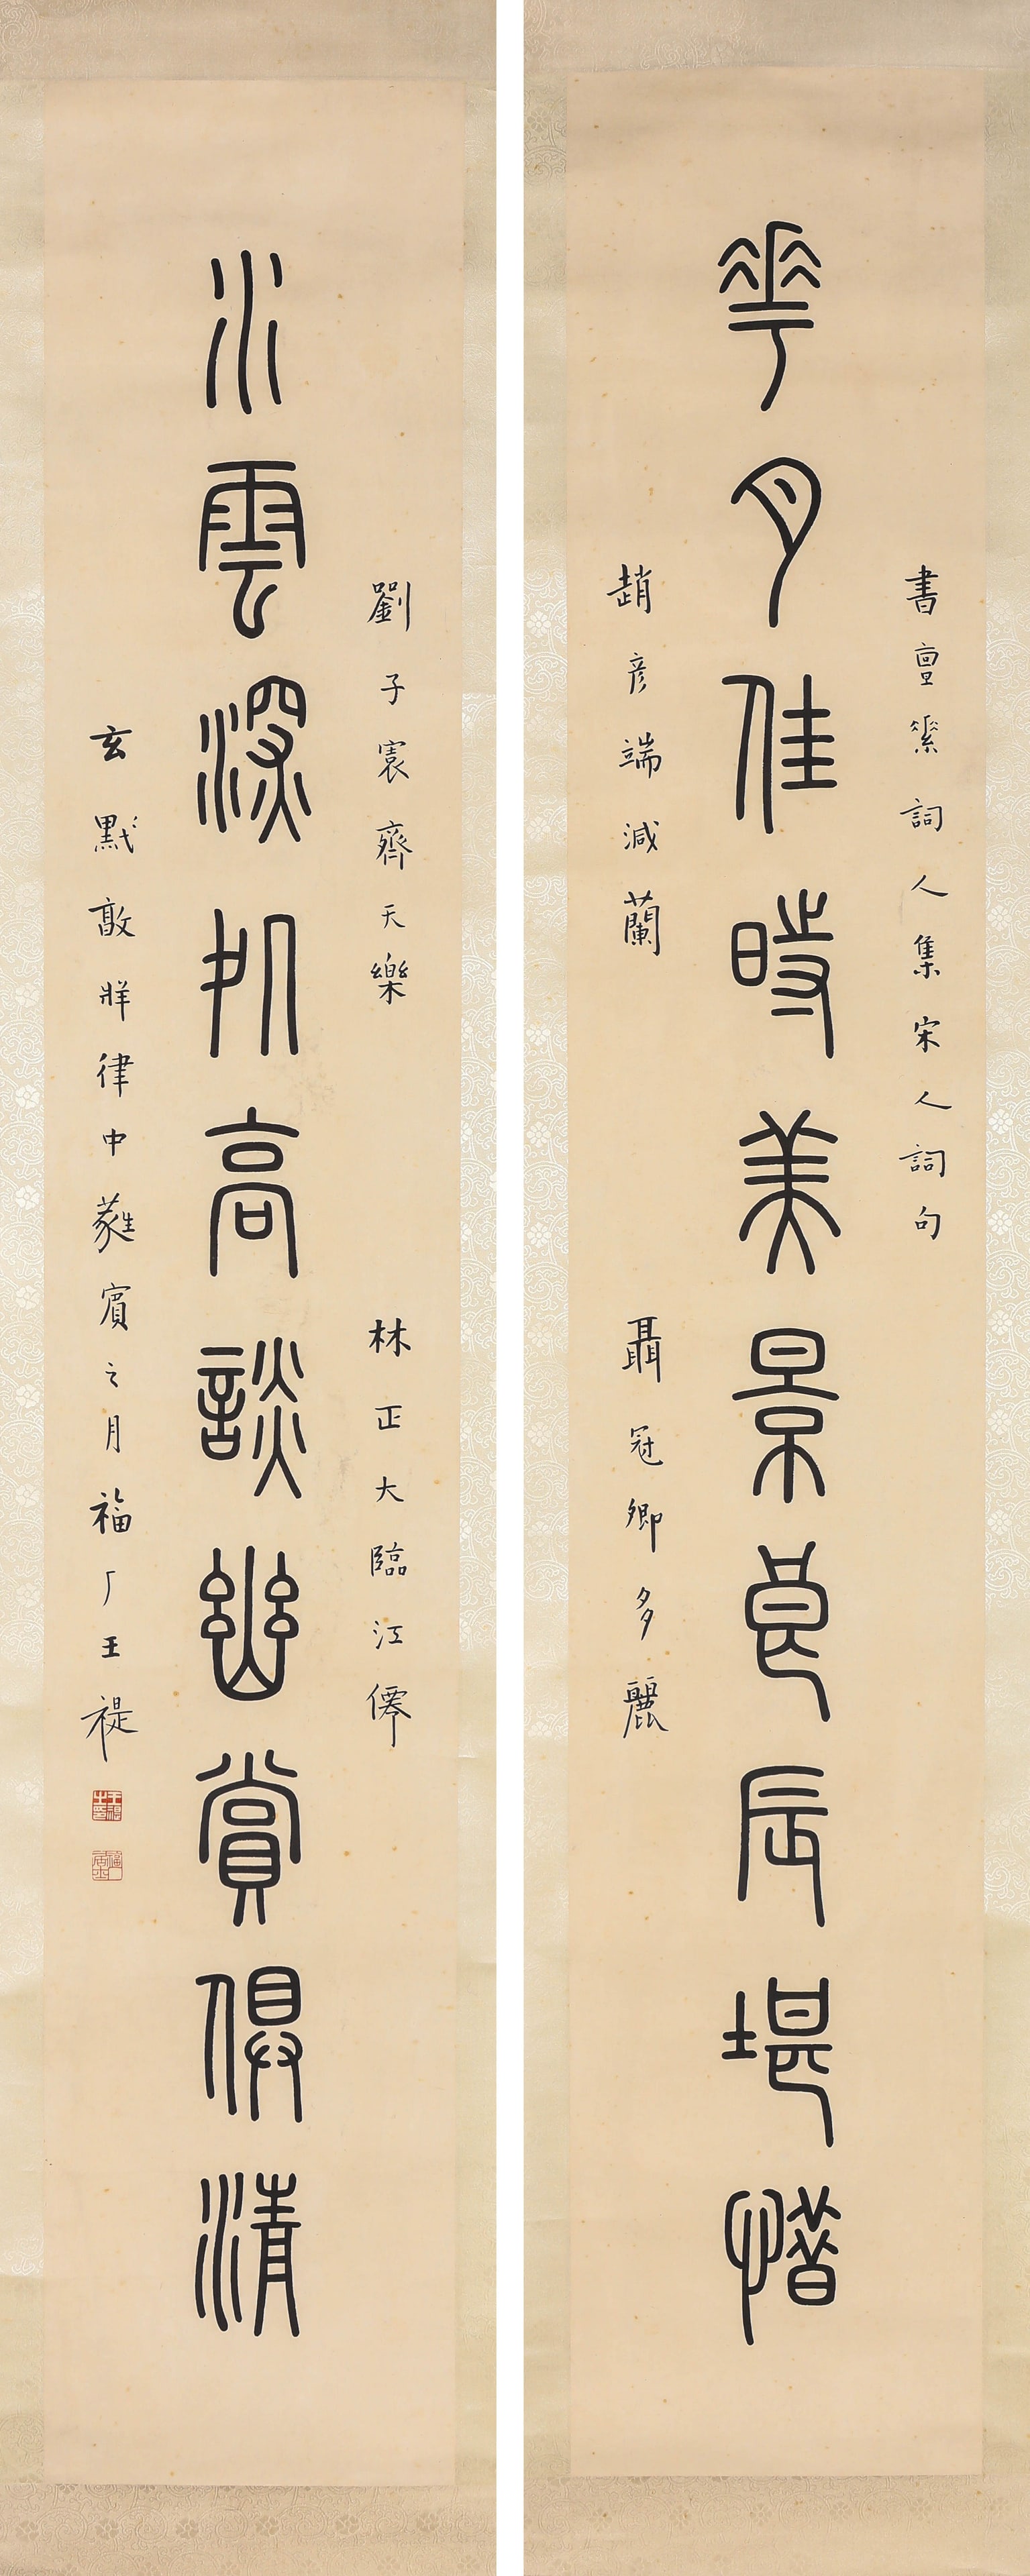 書亶素詞人集宋人詞句
華月佳時美景良辰堪惜
趙彥端減蘭
聶冠卿多麗
劉子寰齊天樂
林正大臨江僊
水雲深所高談幽賞俱清
玄黓敦牂律中蕤賓之月福厂王禔
王禔之印
福厂居士